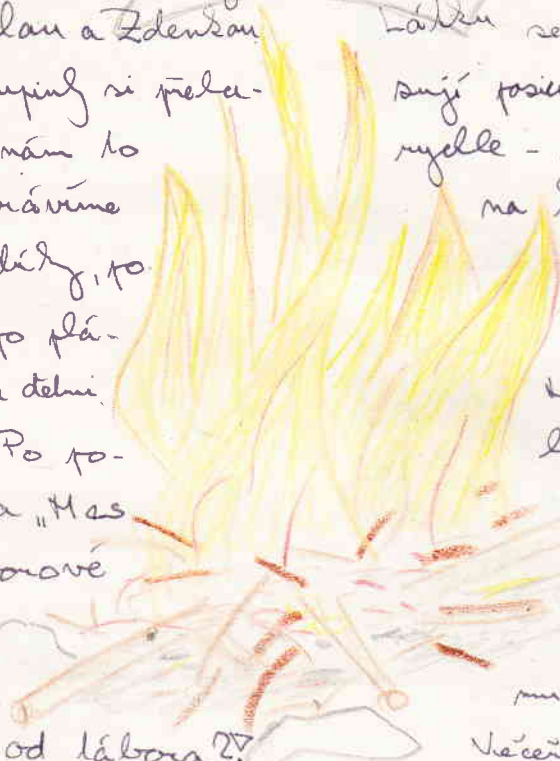 lau a Zdenkou
upiny si přela-
nám to
rávíme
po
po plá-
dětmi.
Po po-
a „Mes
orové
od tábora?
Látku se
sují posic
rychle -
na
Večeř